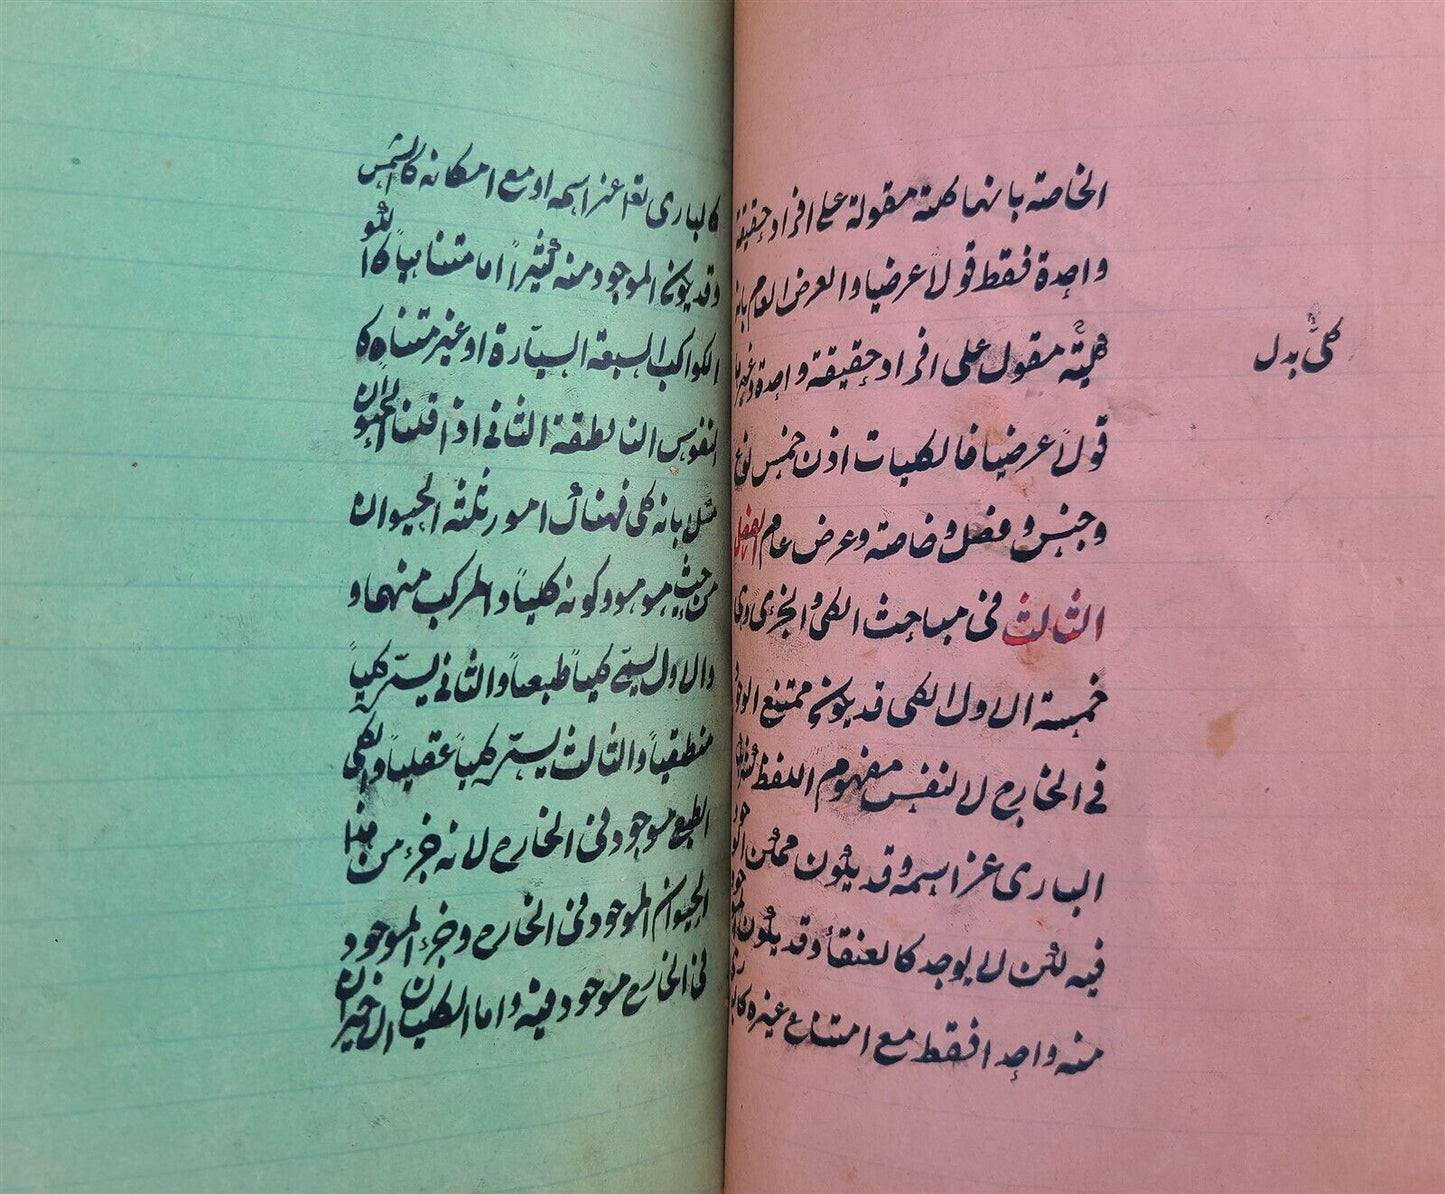 الخاصة بانها كلية مقولة على افراد حقيقة
واحدة فقط قولاً عرضيا والعرض العام بانه
كلية مقول على افراد حقيقة واحدة وغيرها
كلىٌّ بدل
قولاً عرضيا فالكليات اذن خمس نوع
وجنس و فصل و خاصة وعرض عام الفصل
الثالث فى مباحث الكلى والجزءى وهى
خمسة الاول الكلى قد يكون ممتنع الوجود
فى الخارج لا لنفس مفهوم اللفظ كشريك
البارى عز اسمه و قد يكون ممكن الوجود
فيه لكن لا يوجد كالعنقاء وقد يكون الموجود
منه واحدا فقط مع امتناع غيره كالبارى
كالبارى تعا عز اسمه او مع امكانه كالشمس
وقد يكون الموجود منه كثيراً اما متناهياً كالكو
الكواكب السبعة السيّارة او غير متناه كا
النفوس الناطقة الثانى اذا قلنا الحيوان
مثلا بانه كلى فهناك امور ثلثة الحيوان
من حيث هو هو وكونه كلياً والمركب منهما و
والاول يسمّى كلياً طبعياً والثانى يسمّى كلياً
منطقياً والثالث يسمّى كلياً عقلياً والكلى
الطبعى موجود فى الخارج لانه جزء من هذا
الحيوان الموجود فى الخارج وجزء الموجود
فى الخارج موجود فيه واما الكليان الاخيران